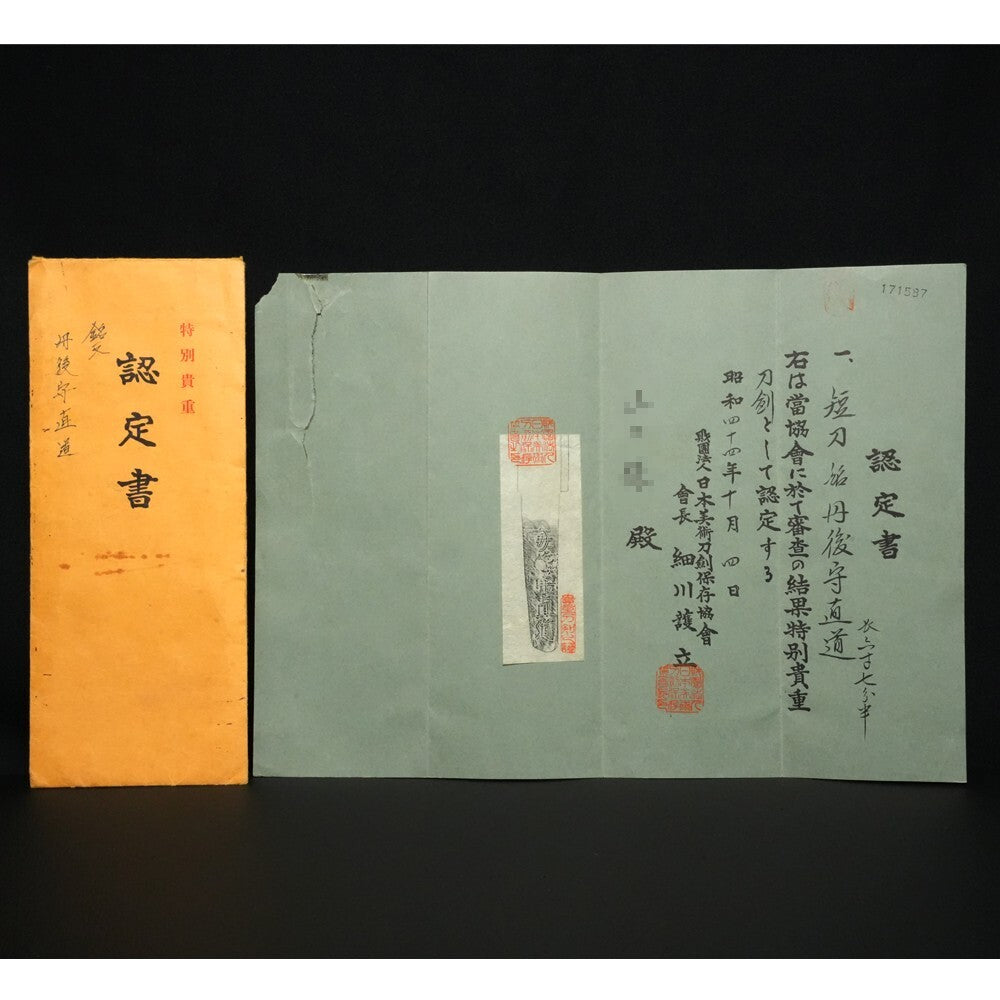 特別貴重
認定書
銘文
丹後守直道
171587
認定書
一、短刀 銘 丹後守直道
長六寸七分半
右は當協會に於て審査の結果特別貴重
刀劍として認定する
昭和四十四年十月四日
財團法人日本美術刀劍保存協會
會長 細川護立
殿